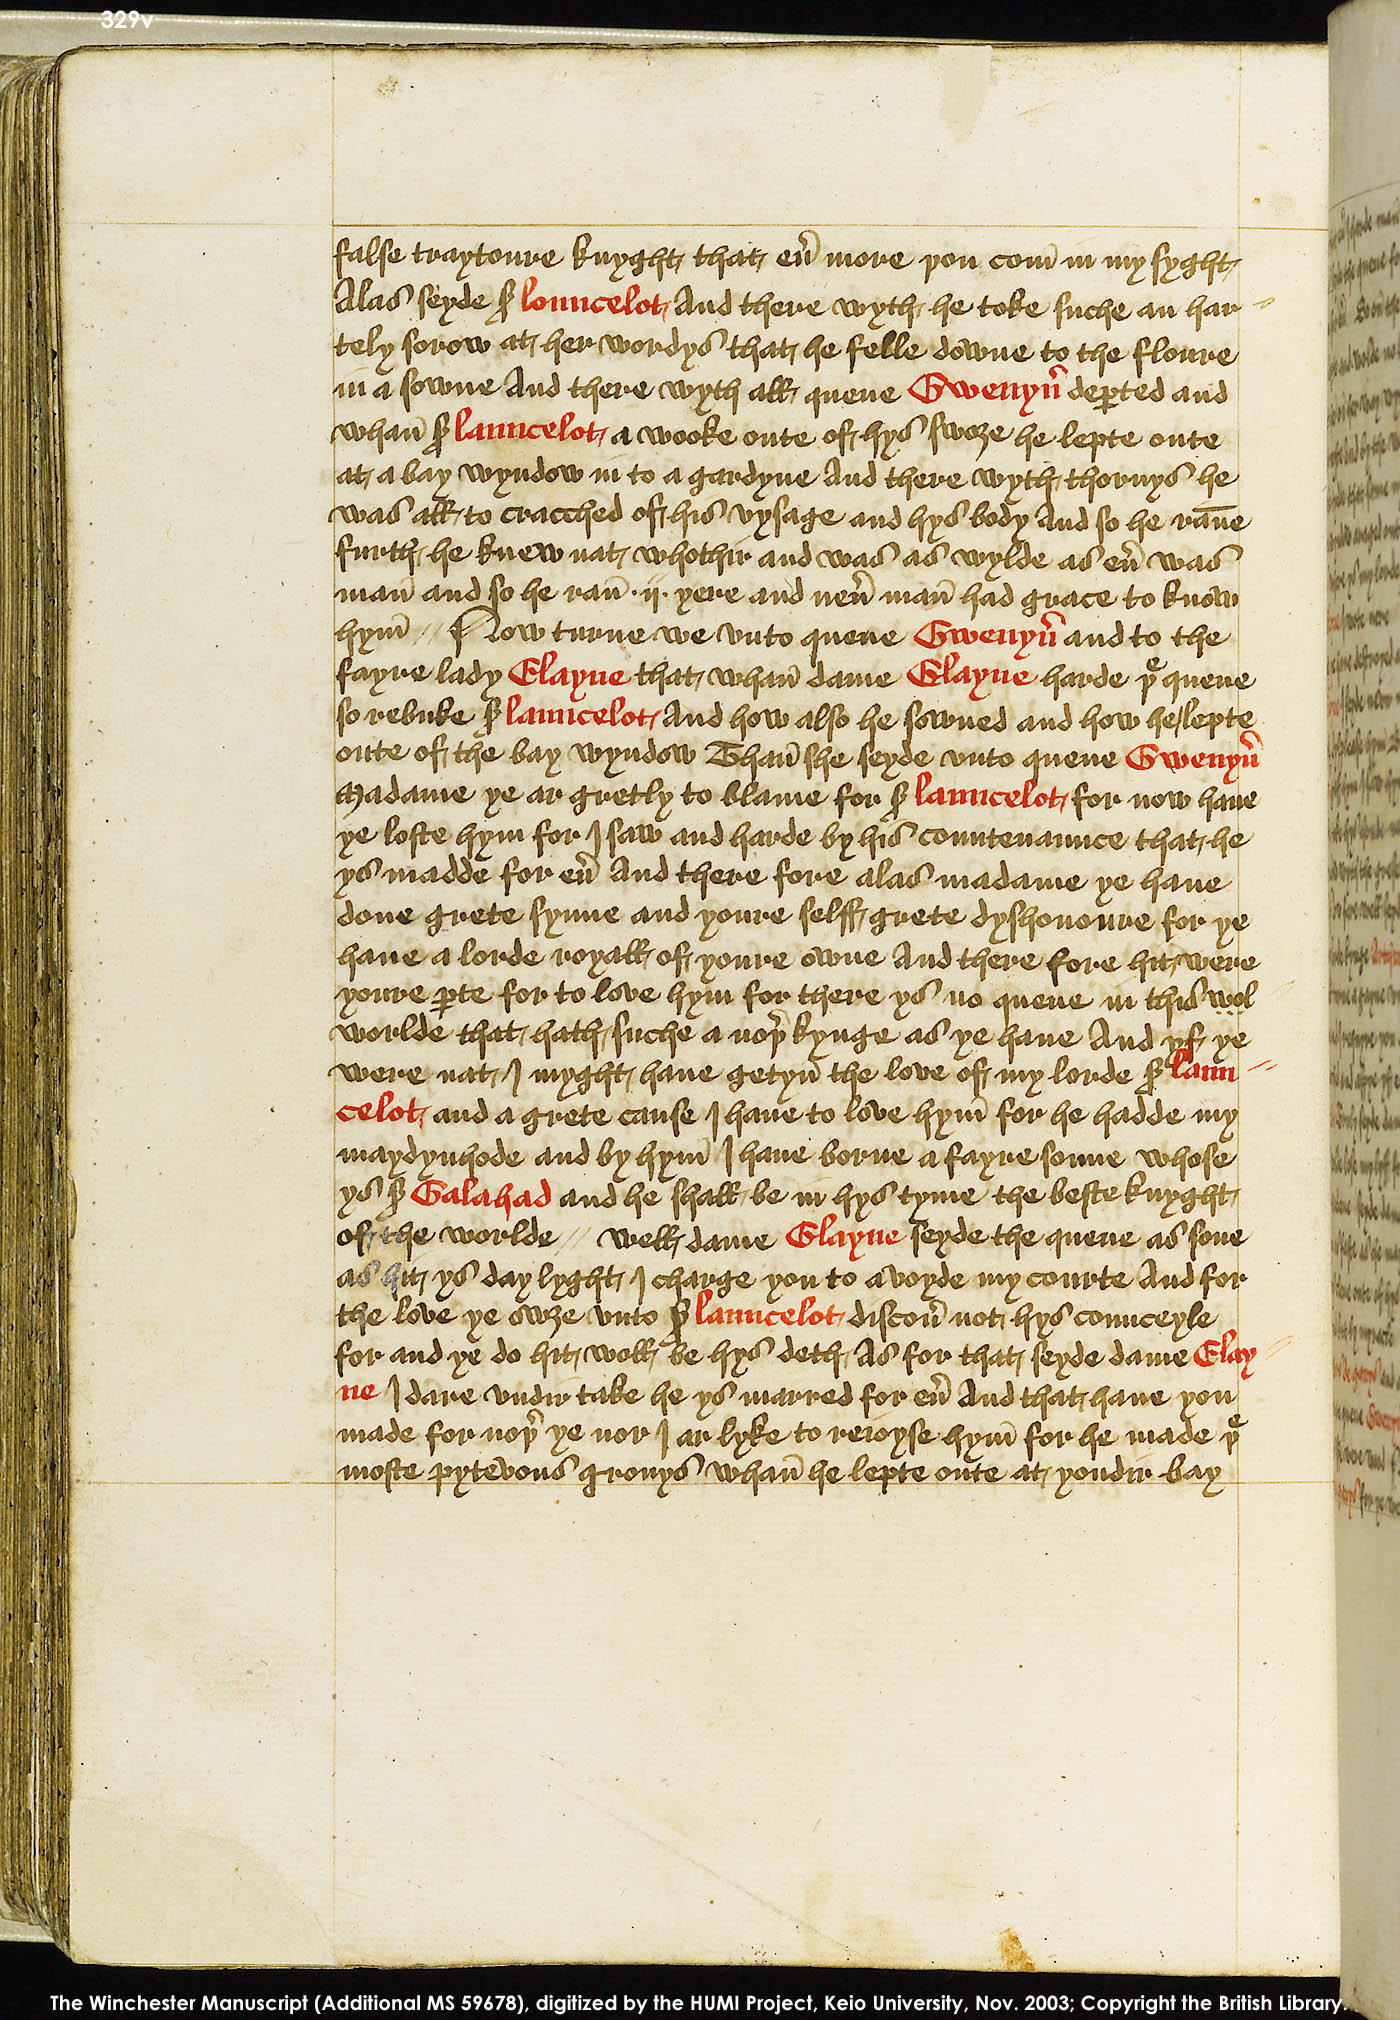 329v
false traytoure knyght that eũ more you com̃ in my syght
Alas seyde ẜ louncelot And there wyth he toke suche an har
tely sorow at her wordys that he felle downe to the floure
in a sowne And there wyth all quene Gwenyũ deꝑted and
whañ ẜ launcelot a wooke oute of hys swoȝe he lepte oute
at a bay wyndow in to a gardyne And there wyth thornys he
was all to cracched of his vysage and hys body And so he ran̄e
furth he knew nat whothir and was as wylde as eũ was
mañ and so he rañ .ij. yere and neũ mañ had grace to know
hym̃ // Now turne we vnto quene Gwenyũ and to the
fayre lady Elayne that whañ dame Elayne harde þͤ quene
so rebuke ẜ launcelot And how also he sowned and how he lepte
oute of the bay wyndow Thañ she seyde vnto quene Gwenyũ
Madame ye ar gretly to blame for ẜ launcelot for now haue
ye loste hym for I saw and harde by his countenaunce that he
ys madde for eũ And there fore alas madame ye haue
done grete synne and youre selff grete dyshonoure for ye
haue a lorde royall of youre owne And there fore hit were
youre ꝑte for to love hym for there ys no quene in this wol
worlde that hath suche a noþ̃ kynge as ye haue And yf ye
were nat I myght haue getyñ the love of my lorde ẜ laun
celot and a grete cause I haue to love hym̃ for he hadde my
maydynhode and by hym̃ I haue borne a fayre sonne whose
ys ẜ Galahad and he shall be in hys tyme the beste knyght
of the worlde // well dame Elayne seyde the quene as sone
as hit ys day lyght I charge you to avoyde my courte And for
the love ye owȝe vnto ẜ launcelot discoũ not hys counceyle
for and ye do hit woll be hys deth As for that seyde dame Elay
ne I dare vndir take he ys marred for eũ And that haue you
made for noþ̃ ye nor I ar lyke to reioyse hym̃ for he made þͤ
moste pytevous gronys whañ he lepte oute at yondir bay
The Winchester Manuscript (Additional MS 59678), digitized by the HUMI Project, Keio University, Nov. 2003; Copyright the British Library.